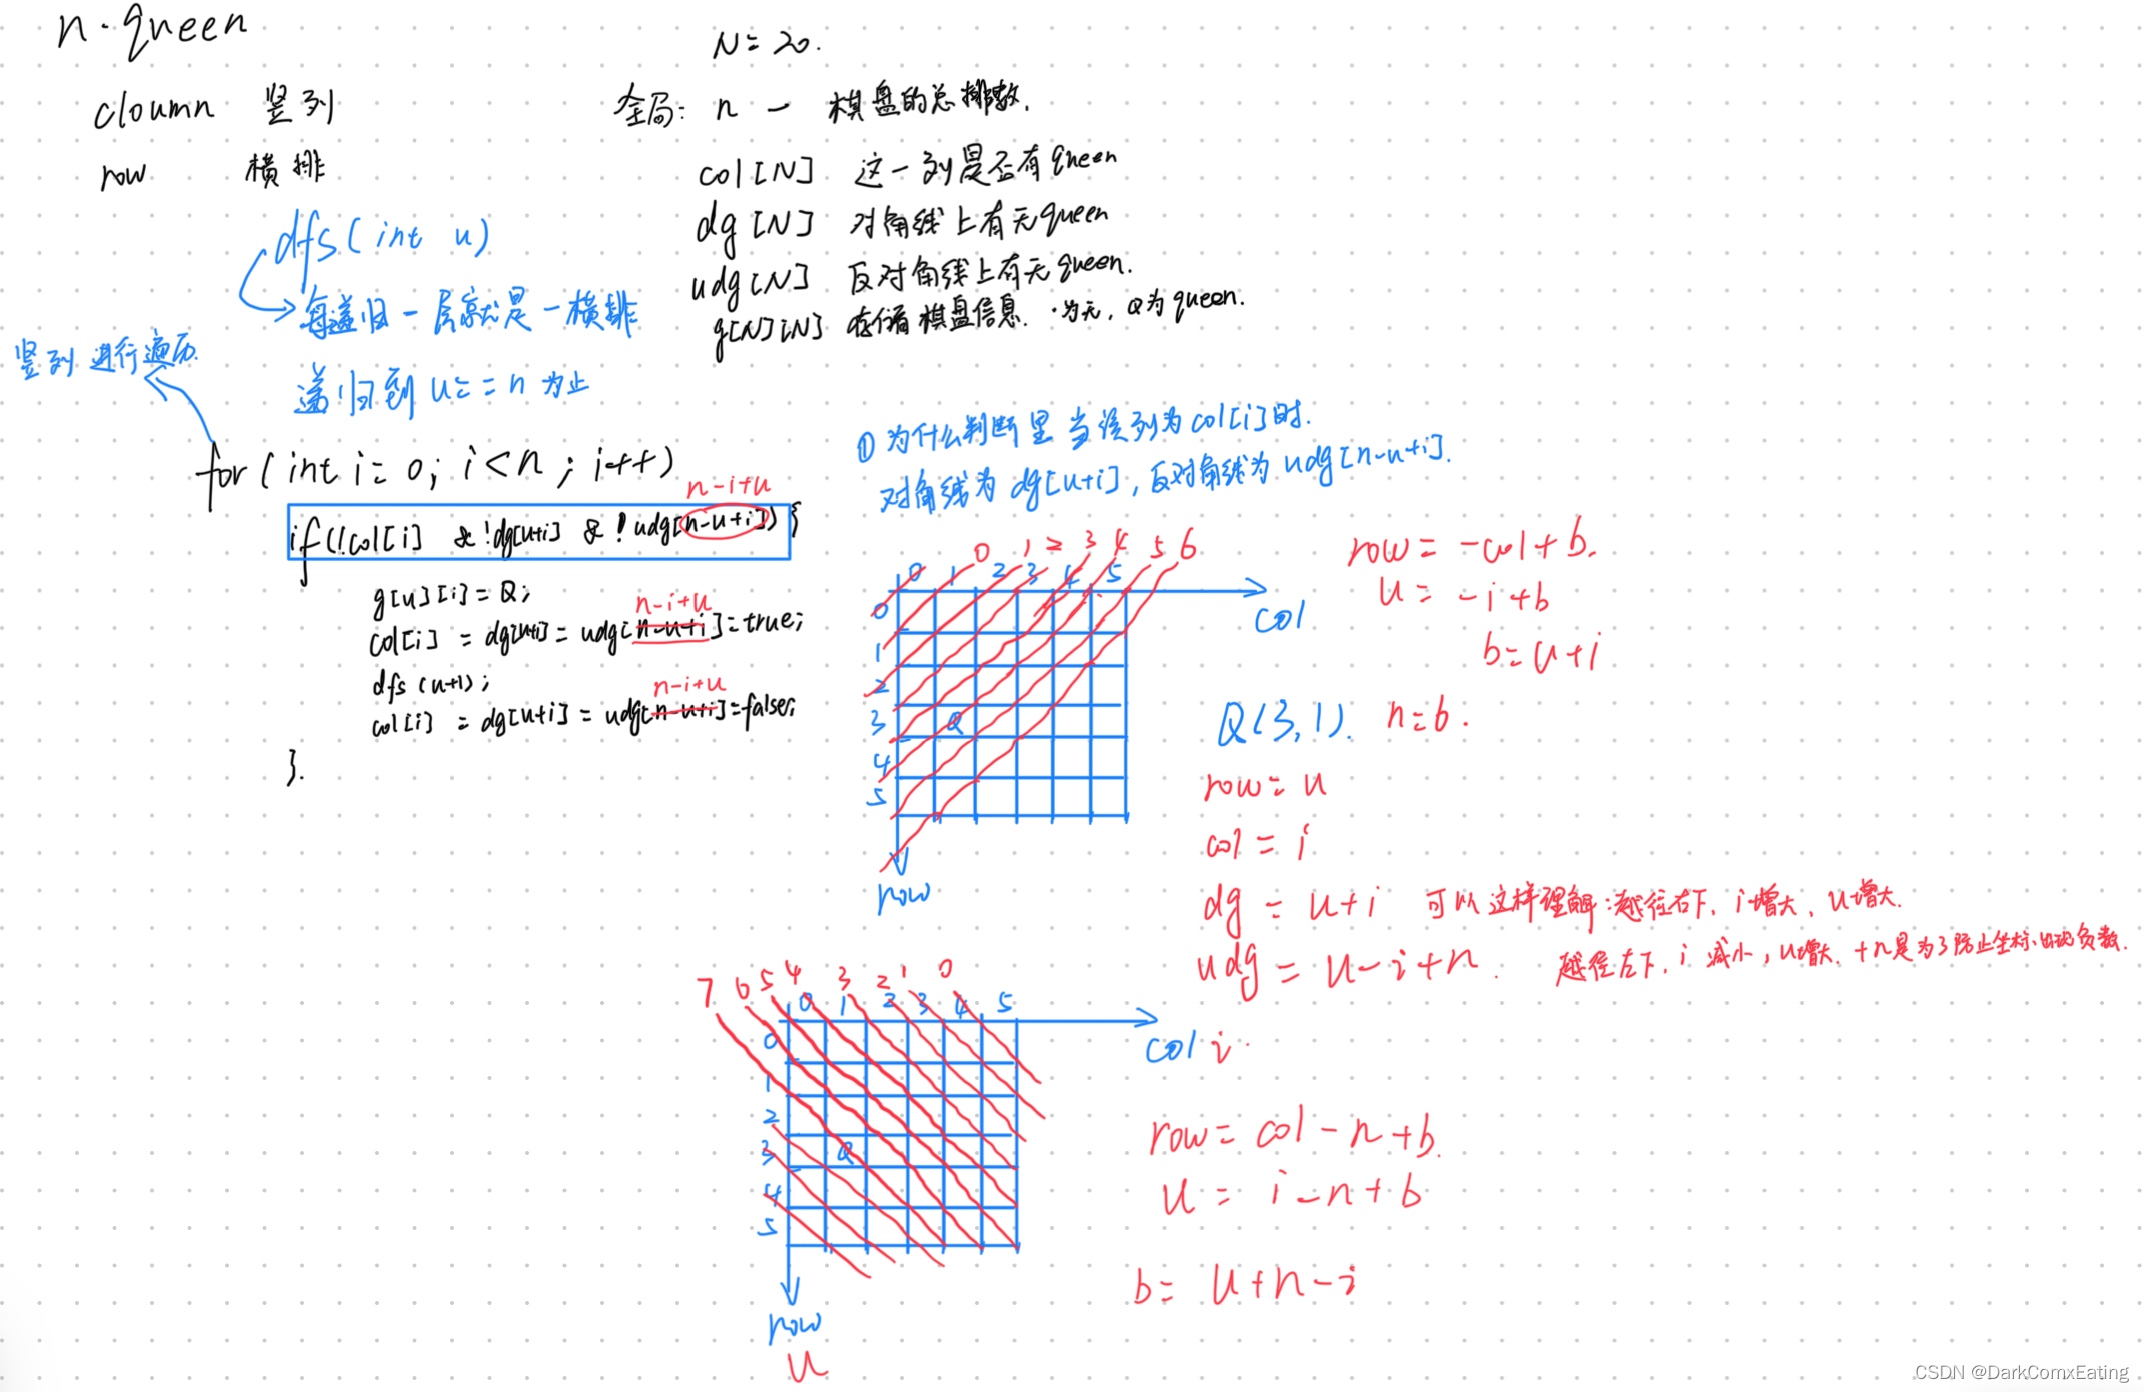 n·queen
cloumn 竖列
row 横排
dfs(int u)
每递归一层就是一横排
递归到 u==n 为止
竖列进行遍历.
for(int i=0; i<n; i++)
n-i+u
if(!col[i] & !dg[u+i] & !udg[n-u+i]) {
g[u][i]=Q;
n-i+u
col[i] = dg[u+i] = udg[n-u+i]=true;
dfs(u+1);
n-i+u
col[i] = dg[u+i] = udg[n-u+i]=false;
}.
N=20.
全局: n — 棋盘的总排数.
col[N] 这一列是否有queen
dg[N] 对角线上有无queen
udg[N] 反对角线上有无queen.
g[N][N] 存储棋盘信息. ·为无, Q为queen.
① 为什么判断里 当该列为col[i]时.
对角线为 dg[u+i], 反对角线为 udg[n-u+i].
0 1 2 3 4 5 6
0 1 2 3 4 5
col
0
1
2
3 Q
4
5
row
row = -col+b.
u = -i+b
b=u+i
Q(3,1). n=6.
row= u
col = i
dg = u+i 可以这样理解:越往右下, i增大, u增大.
udg = u-i+n. 越往左下, i 减小, u增大. +n是为了防止坐标出现负数.
7 6 5 4 3 2 1 0
0 1 2 3 4 5
col i.
0
1
2
3 Q
4
5
row
u
row= col-n+b.
u = i-n+b
b= u+n-i
CSDN @DarkComxEating